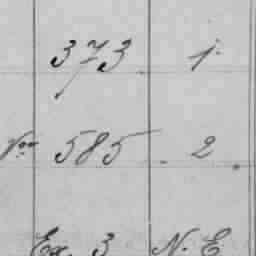 373 1.
Nos 585 2.
Ex 3 N. E